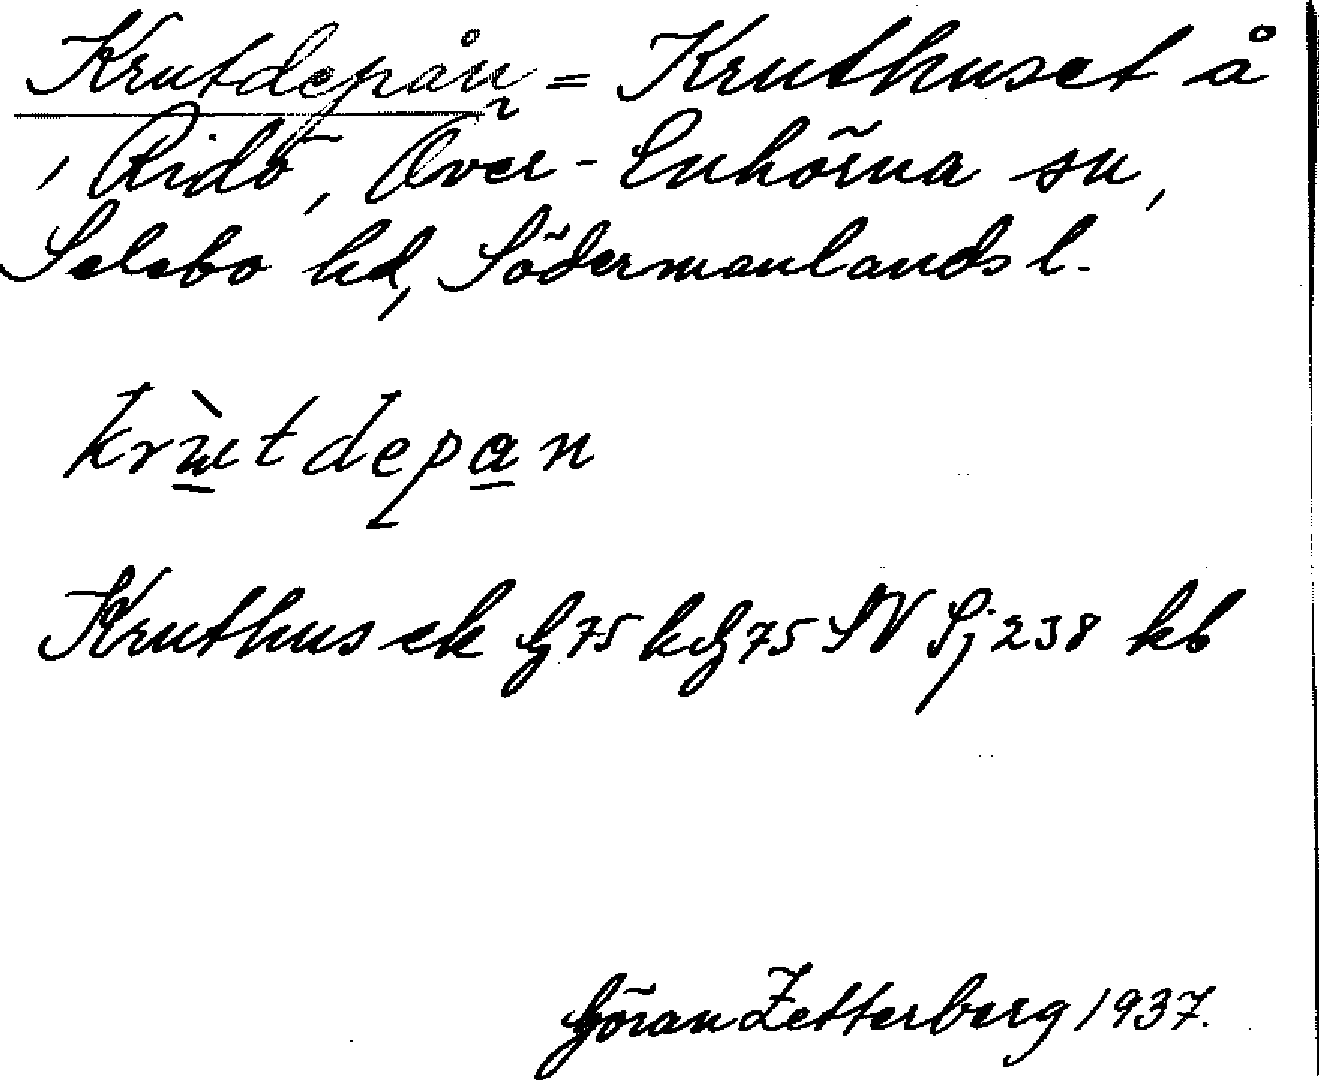 Krutdepån = Kruthuset å
, Ridö, Över-Enhörna sn,
Selebo hd, Södermanlands l.
krùtdepan
Kruthus ek G75 kG75 SV Sj 238 kb
Göran Zetterberg 1937.